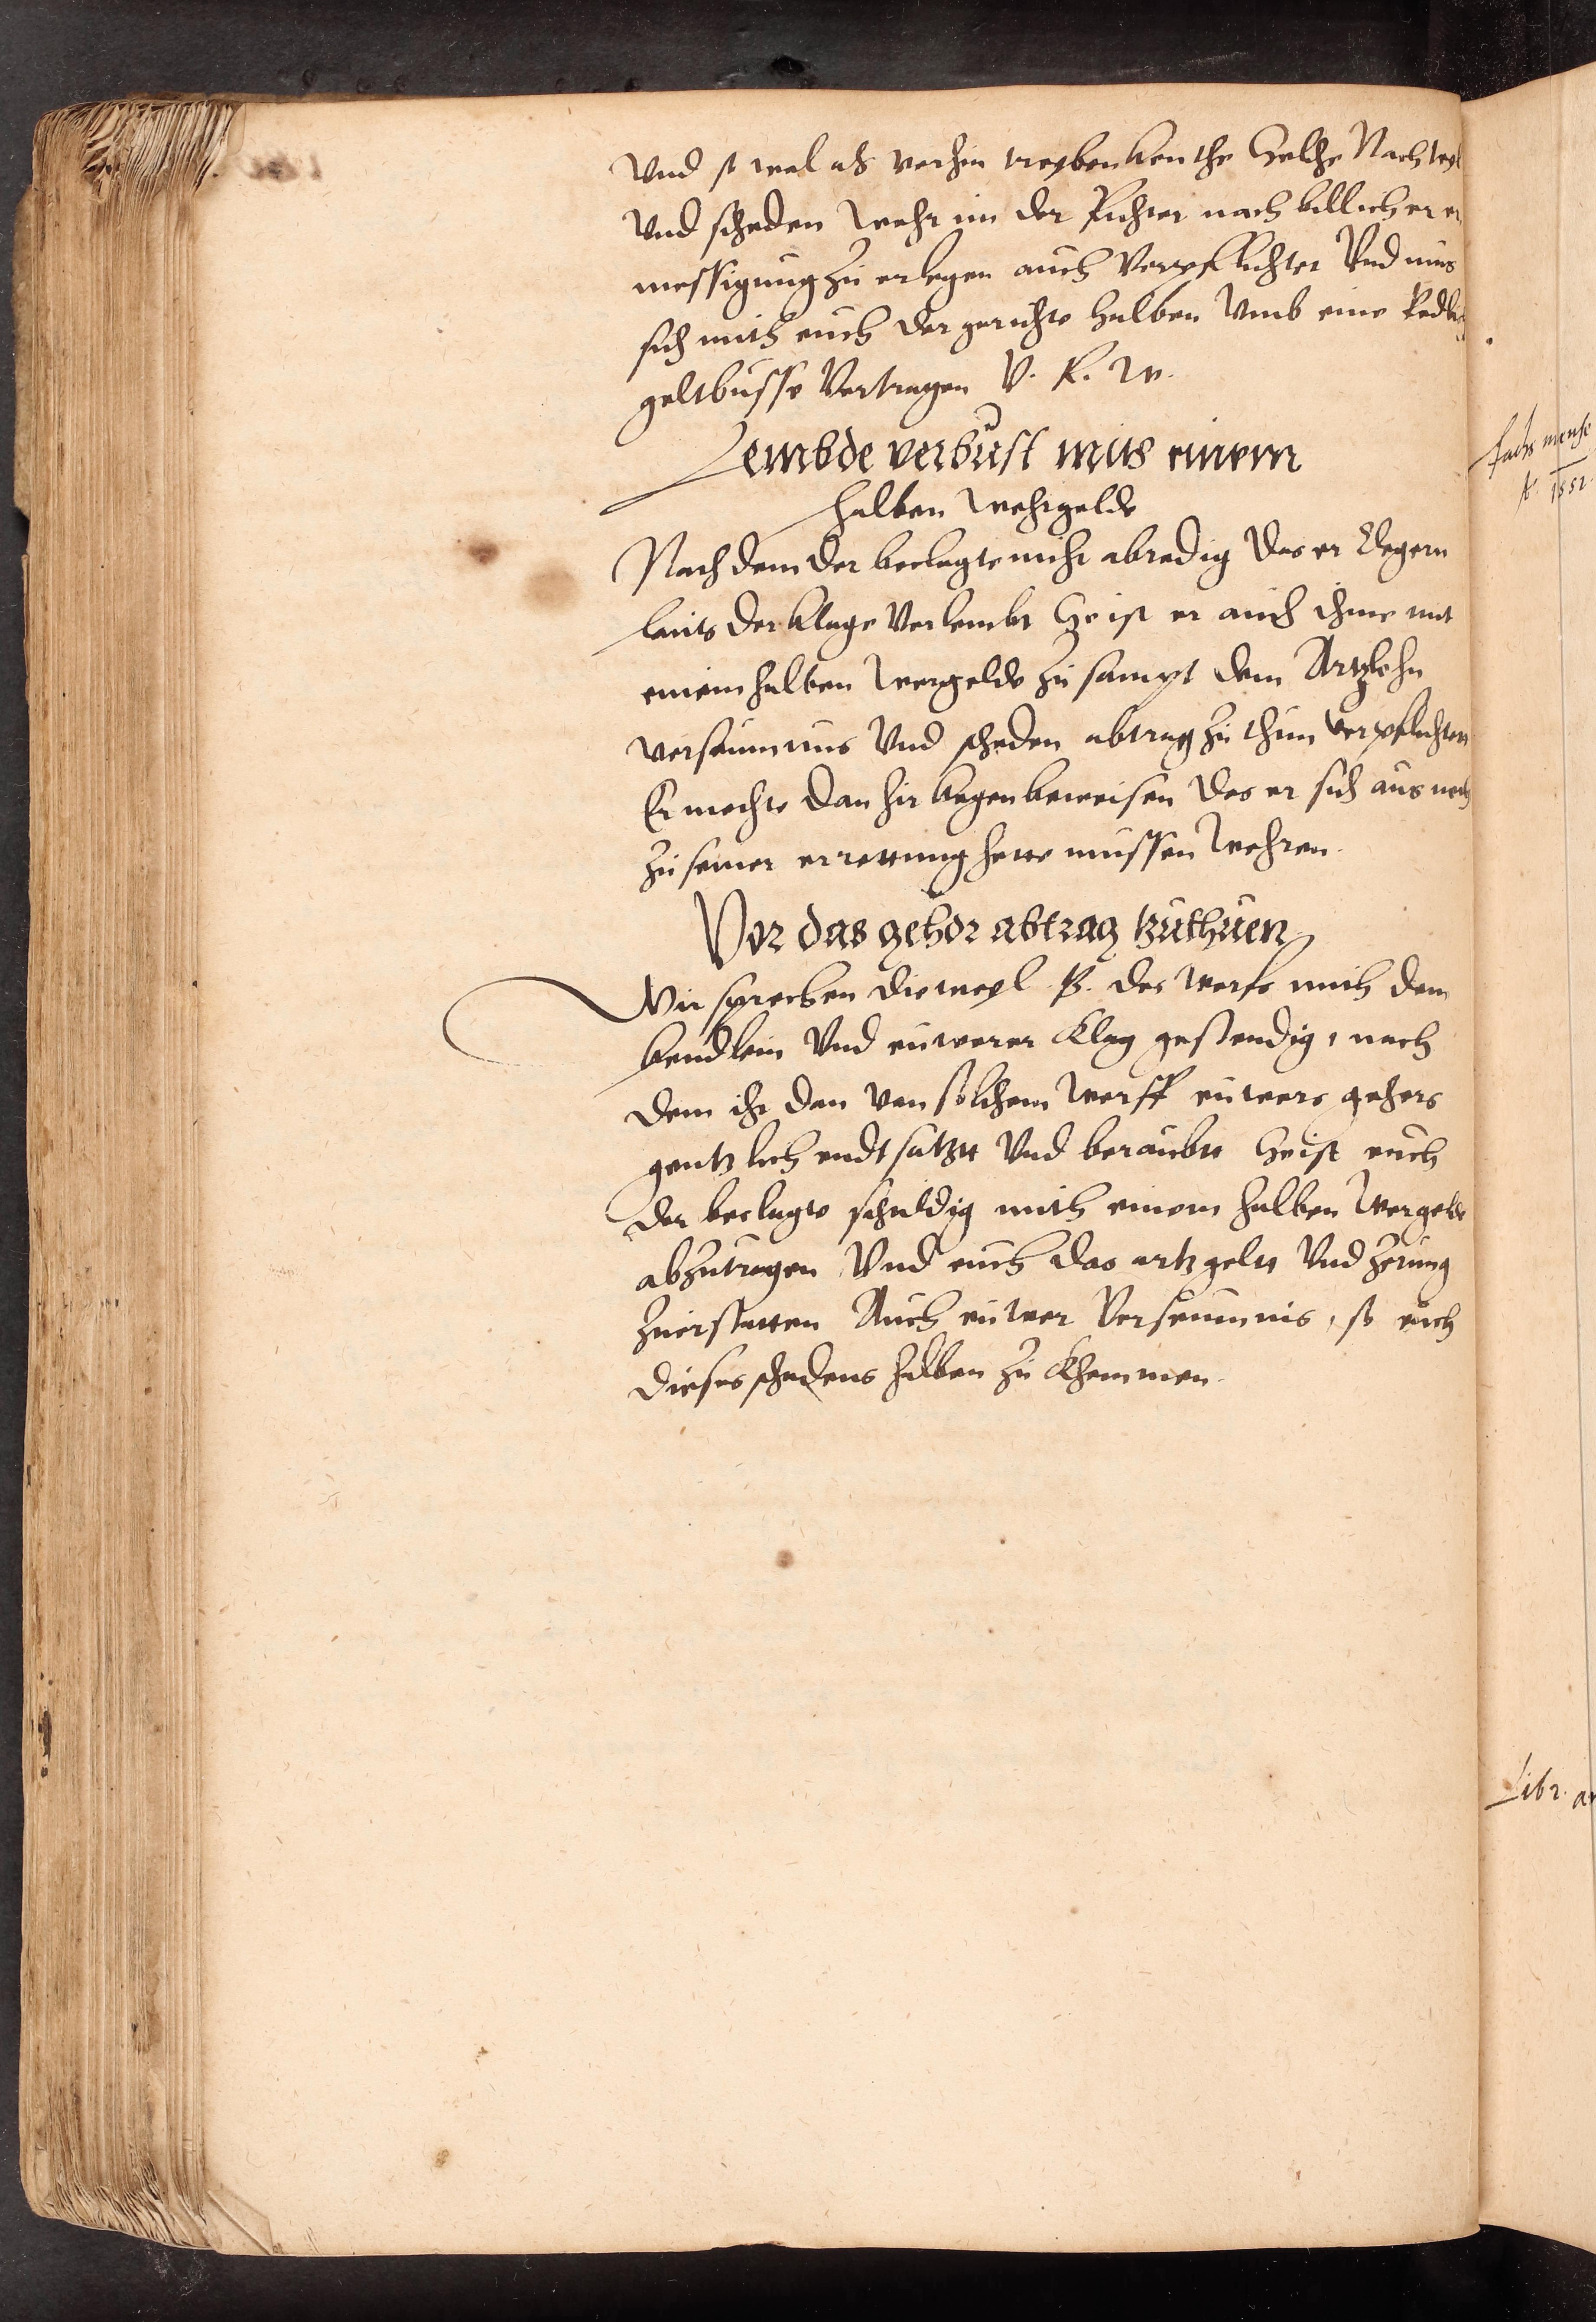 Vnd so wol als vorhin treyben konthe Solche Nachteyl
Vnd scheden Wehr im der Richter nach billicher er
messigung zu erlegen auch Verpflichtet Vnd mus
sich mith euch der gerichte halben Vmb eine Redlic
geltbusse Vertragen V. R. W.
Lembde verbust mith einem
halben Wehrgelde
Nach dem der beclagte nicht abredig Das er Clegern
lauts der klage Verlembt So ist er auch ihme mit
einem halben Wergelde zu sampt dem Artzlohn
versaumnus Vnd scheden abtrag zu thun Verpflichtet
Er mochte dan hir kegen beweisen Das er sich aus noth
zu seiner errettung hette mussen Wehren.
Vor das gehor abtrag tzuthuen
Wir sprechen dieweyl P. des Worfs mith dem
kendlein Vnd euwerer Klag gestendig, nach
dem ihr dan von solchem Worff euwers gehors
gentzlich endtsatztt Vnd beraubtt So ist euch
der beclagte schuldig mith einem halben Wergelde
abzutragen Vnd euch das artzgeltt Vnd Zerung
zuerstatten Auch euwer Verseumnis, so euch
dieses schadens halben zu Khommen.
fachs mense
A. 1552.
Libr.